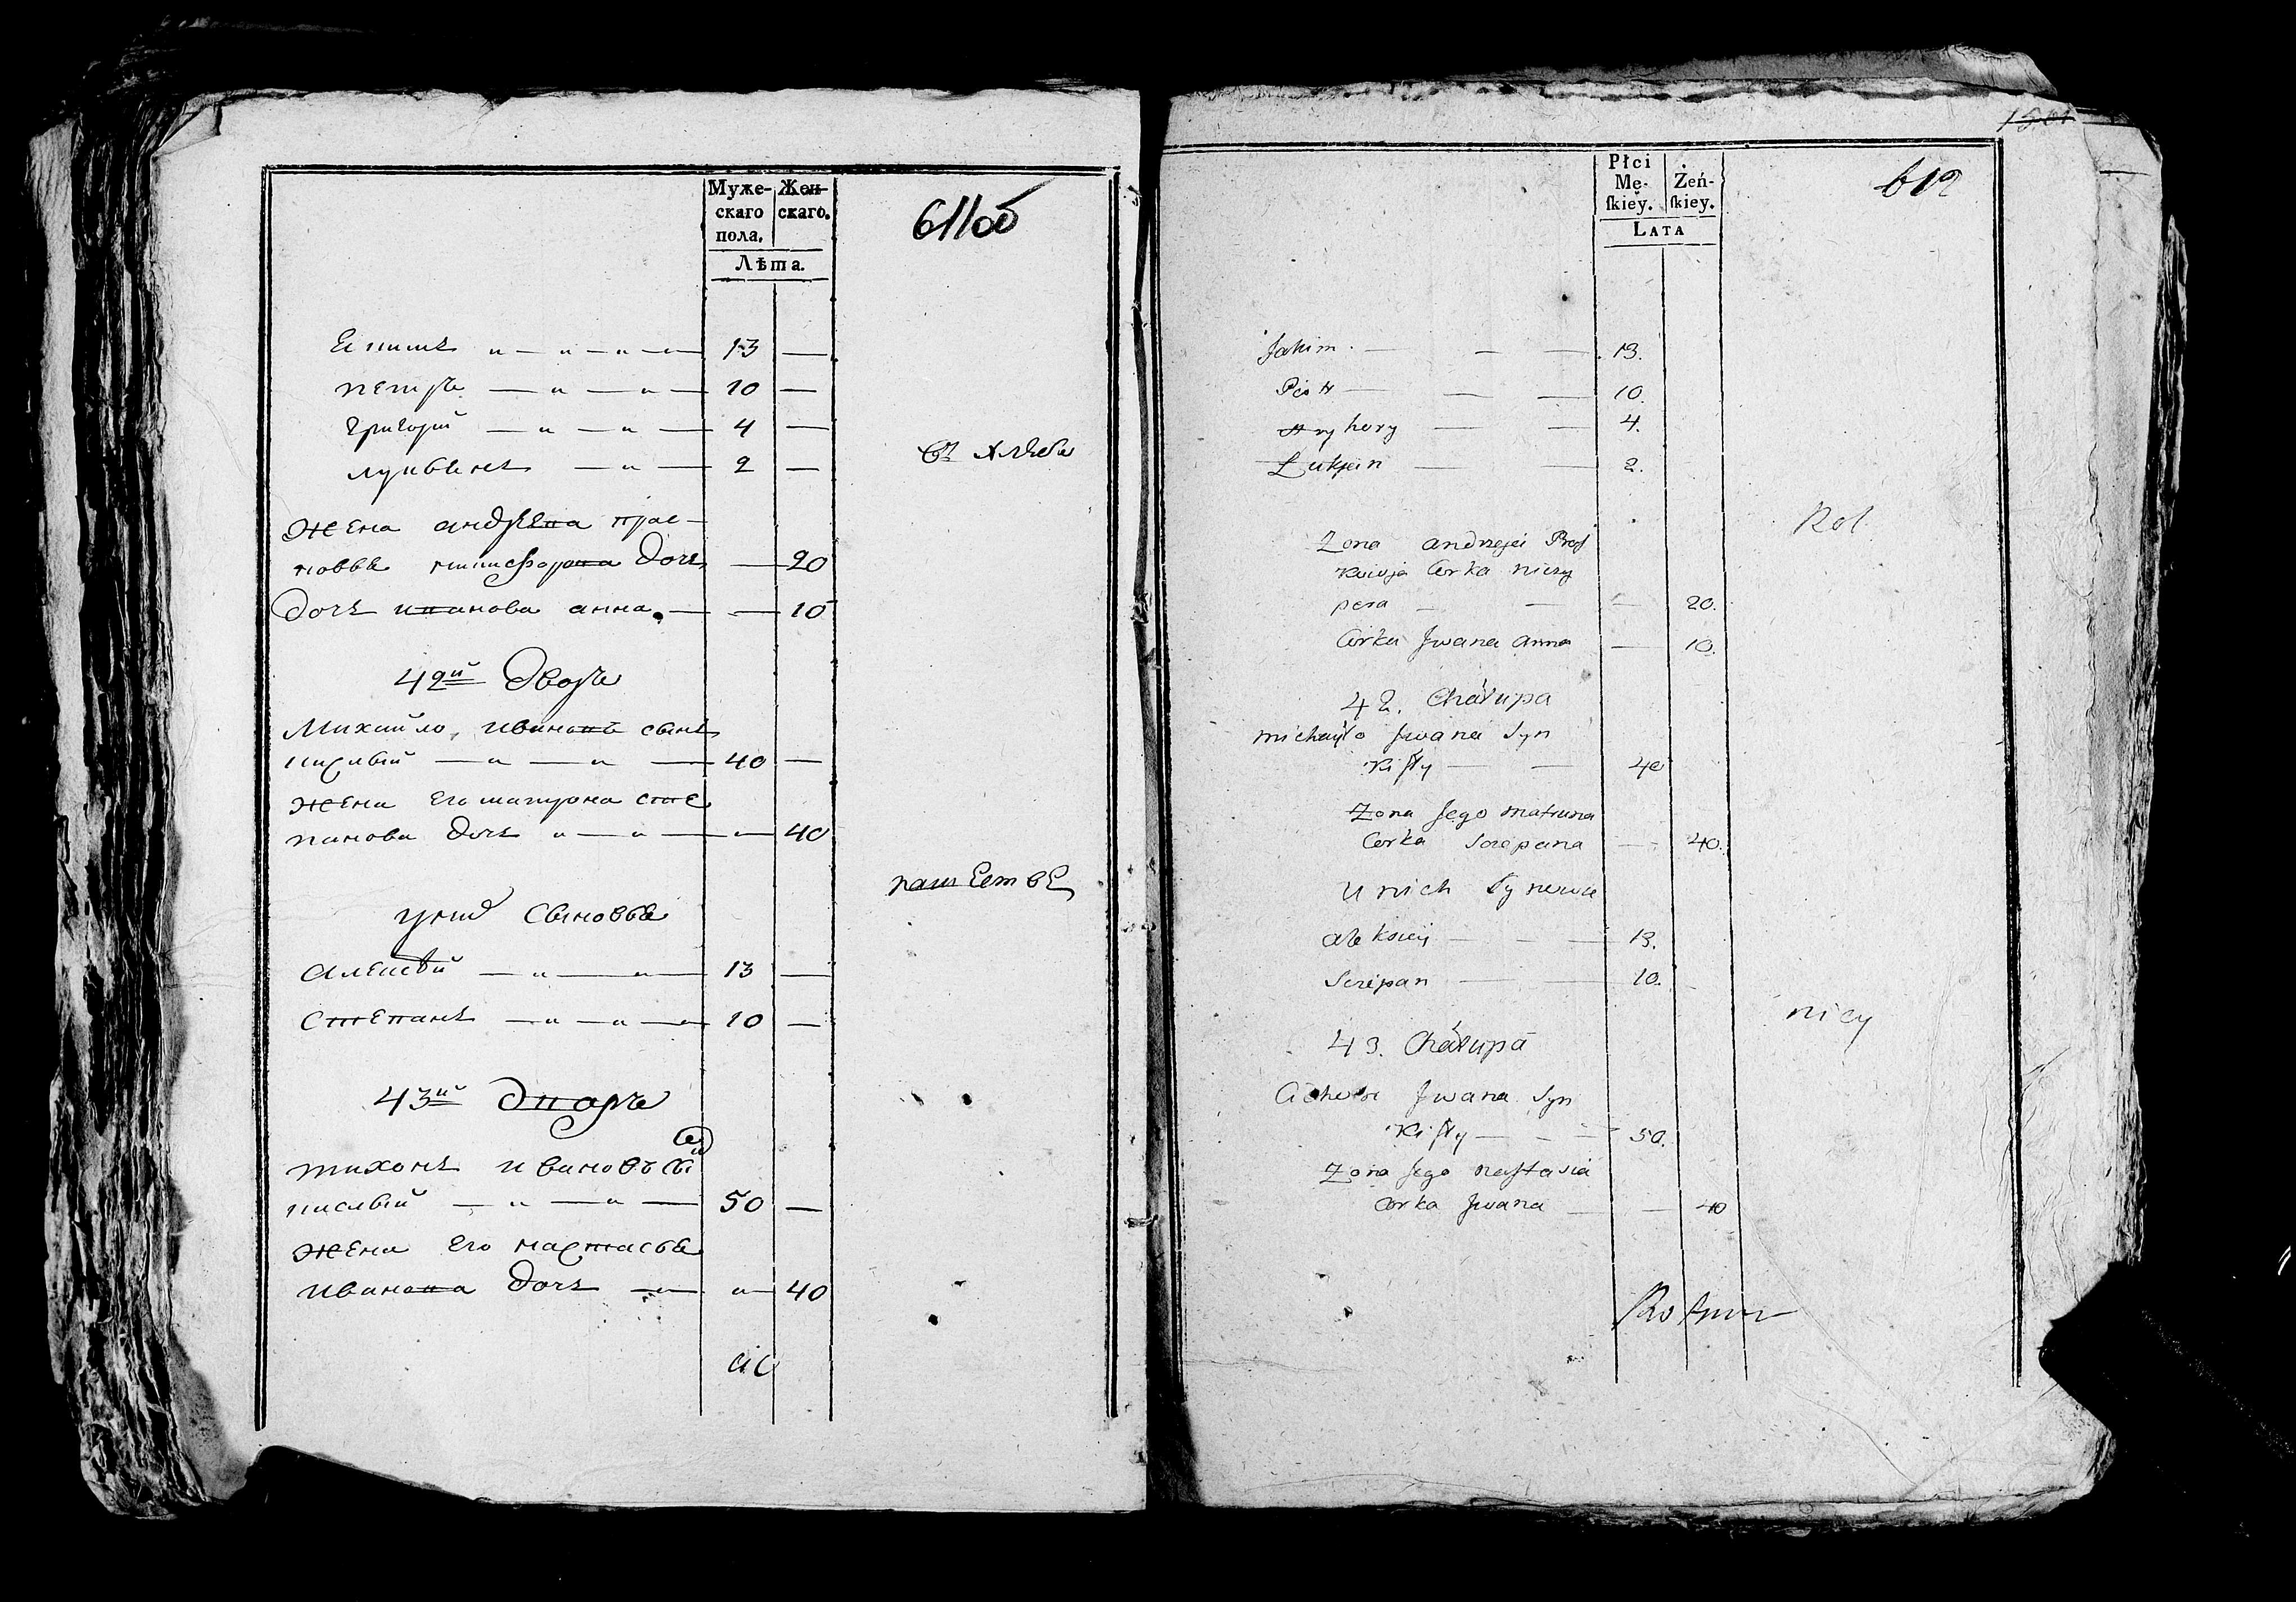 Муже-
скаго
пола.
Жен-
скаго.
Лѣта.
611об
Екимъ 13
Петръ 10
Григорий 4
Лукьянъ 2
въ хлебо
Жена андрѣева прас-
ковья никифорова дочь 20
Дочь иванова анна 10
42й дворъ
Михайло ивановъ сынъ
кислый 40
Жена его матрона сте
панова дочь 40
пашестве
у них сыновья
Алексѣй 13
Степанъ 10
43й дворъ
Тихонъ ивановъ сы
кислый 50
Жена его настасья
иванова дочь 40
Płci
Mę-
ſkiey.
Żeń-
ſkiey.
LATA
612
Jakim 13.
Piotr 10.
Hryhory 4.
Łukjan 2.
Rol
Zona andrzeja Pras
kowja Corka niczy
pera 20.
Corka Jwana anna 10.
42. Chałupa
michayło Jwana Syn
Kisły 40
Zona Jego matruna
Corka Sczepana 40.
u nich Synowie
alexiey 13.
Sczepan 10.
nicy
43. Chałupa
Cichon Jwana Syn
Kisły 50.
Zona Jego nastasia
Corka Jwana 40